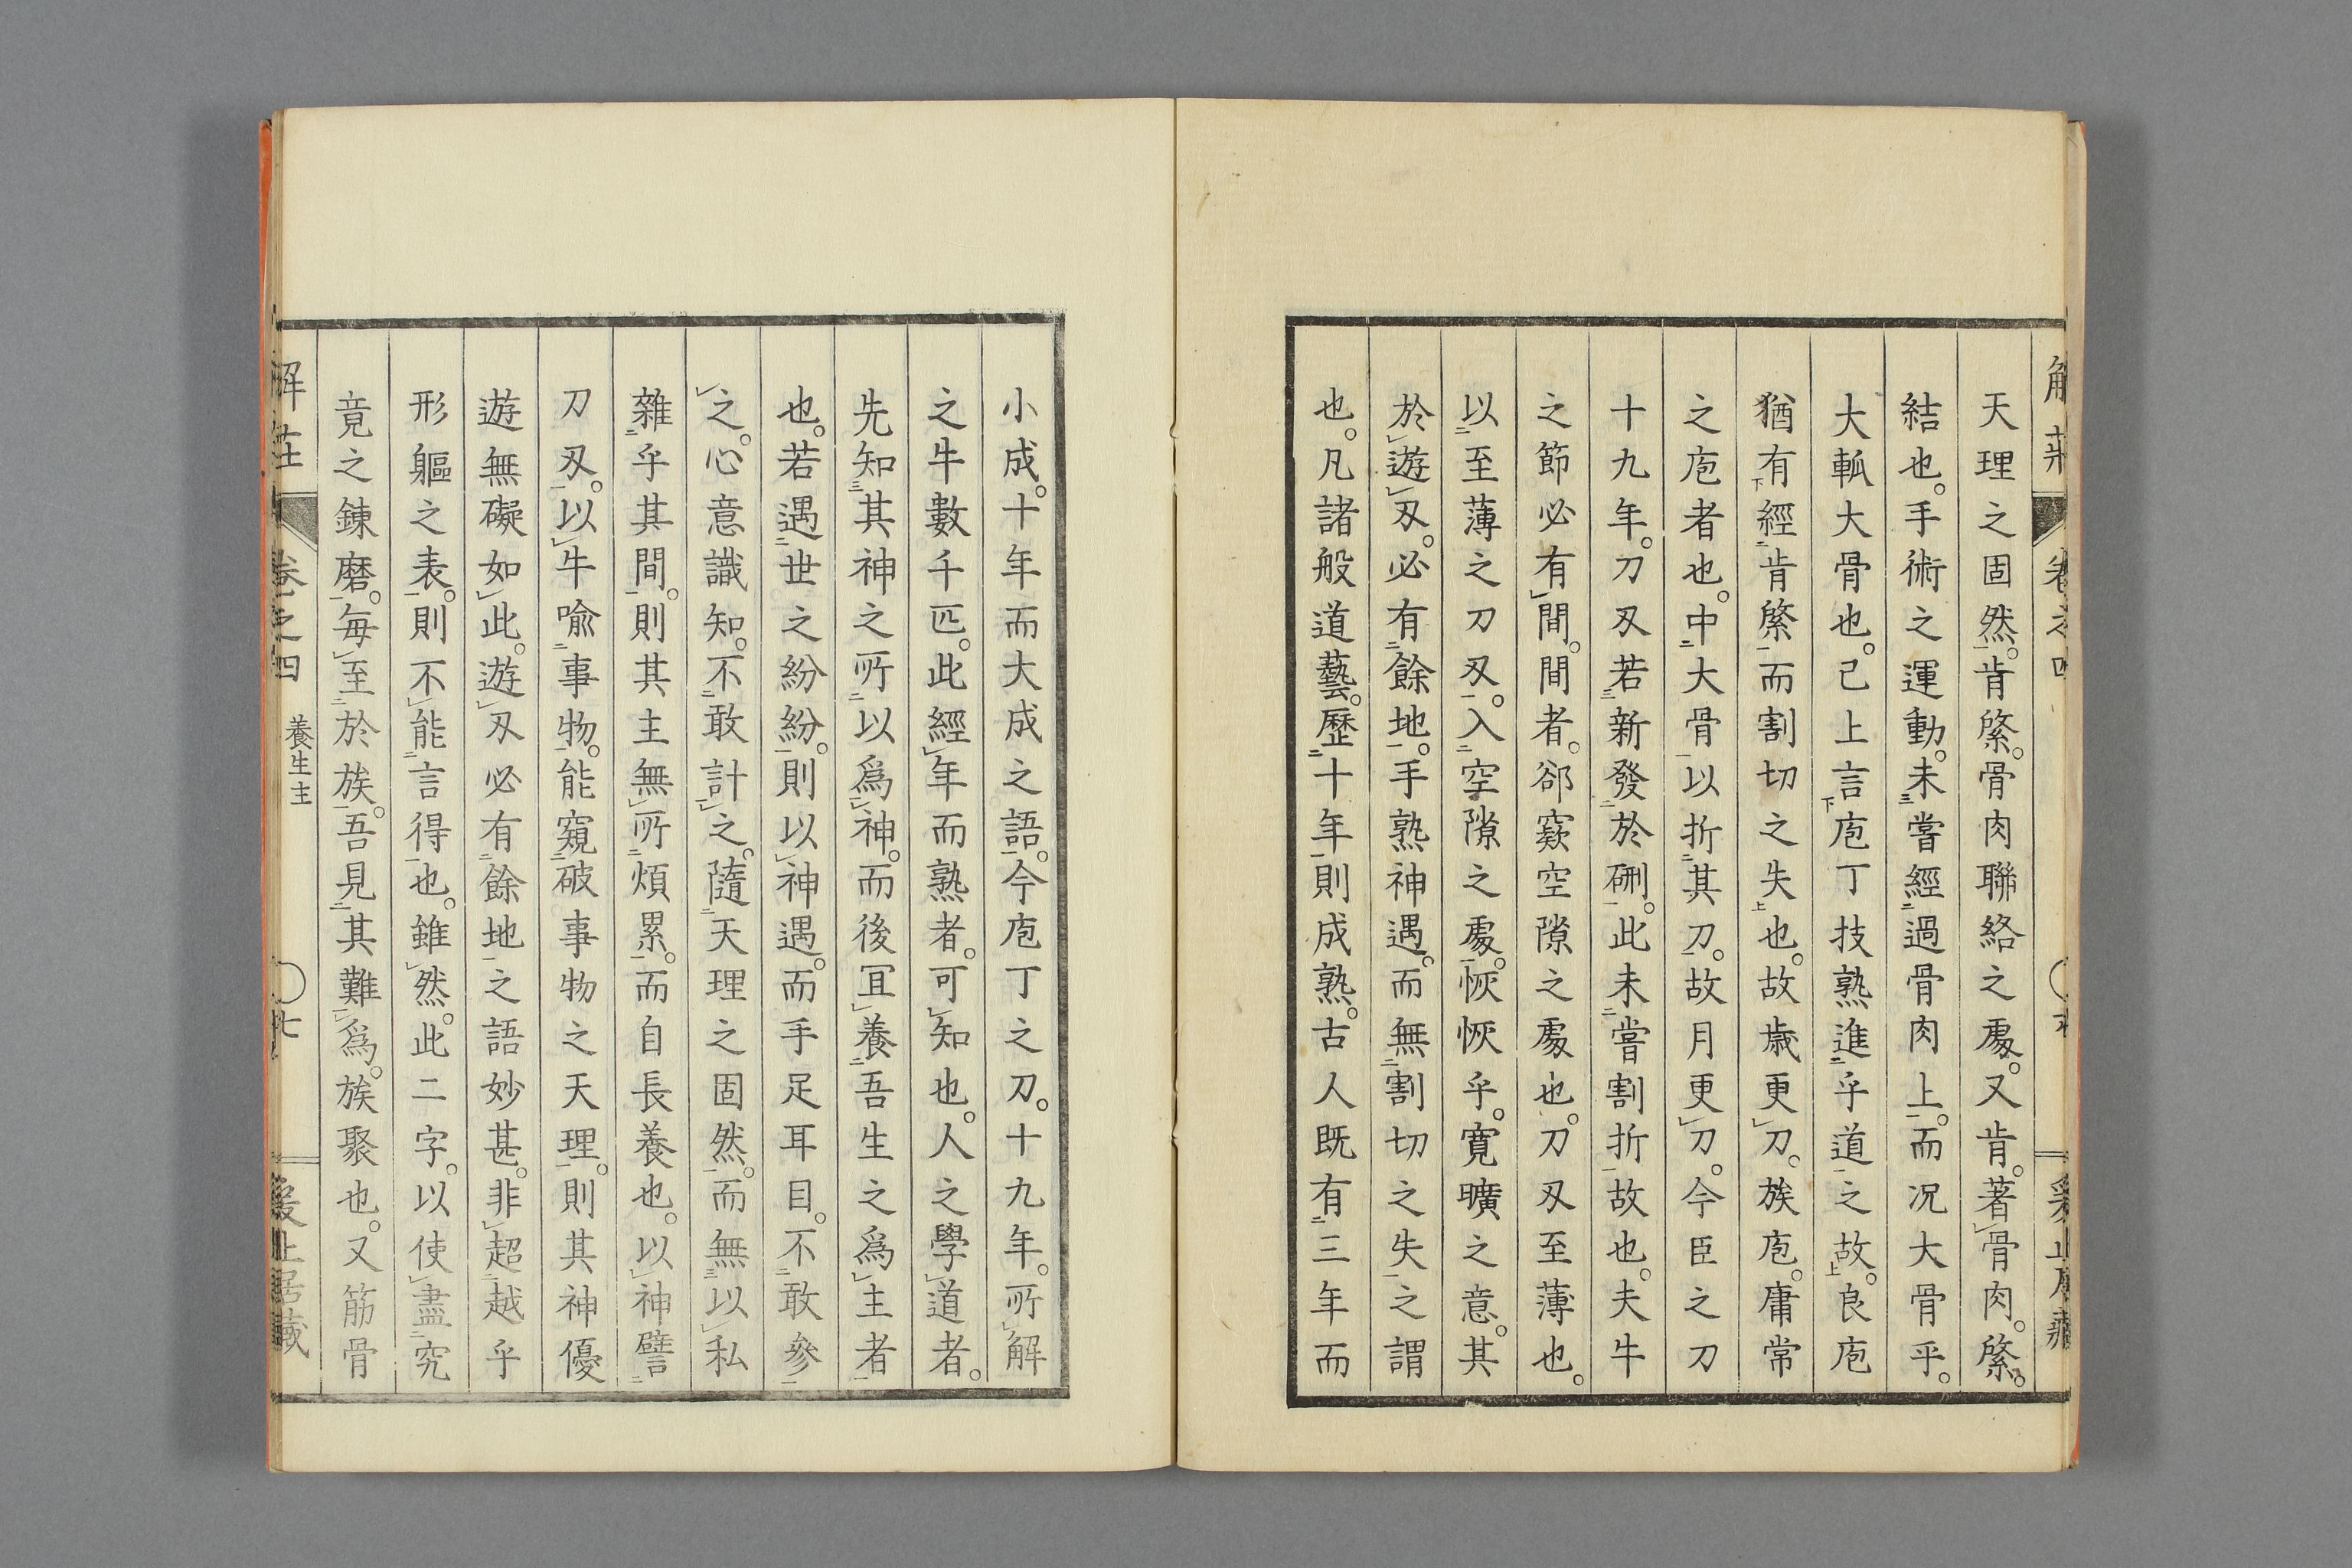 天理之固然。肯綮。骨肉聯絡之處。又肯。著骨肉。綮。
結也。手術之運動。未嘗經過骨肉上。而况大骨乎。
大軱大骨也。已上言庖丁技熟進乎道之故。良庖
猶有經肯綮而割切之失也。故歳更刀。族庖。庸常
之庖者也。中大骨以折其刀。故月更刀。今臣之刀
十九年。刀刄若新發於硎。此未嘗割折故也。夫牛
之節必有間。間者。郤窾空隙之處也。刀刄至薄也。
以至薄之刀刄。入空隙之處。恢恢乎。寬曠之意。其
於遊刄。必有餘地。手熟神遇。而無割切之失之謂
也。凡諸般道藝。歷十年則成熟。古人既有三年而
小成。十年而大成之語。今庖丁之刀。十九年。所解
之牛數千匹。此經年而熟者。可知也。人之學道者。
先知其神之所以爲神。而後冝養吾生之爲主者
也。若遇世之紛紛。則以神遇。而手足耳目。不敢參
之。心意識知。不敢計之。隨天理之固然。而無以私
雜乎其間。則其主無所煩累。而自長養也。以神譬
刀刄。以牛喩事物。能窺破事物之天理。則其神優
遊無礙如此。遊刄必有餘地之語妙甚。非超越乎
形軀之表。則不能言得也。雖然。此二字。以使盡究
竟之錬磨。毎至於族。吾見其難爲。族聚也。又筋骨
解莊
卷之四
養生主
〇七